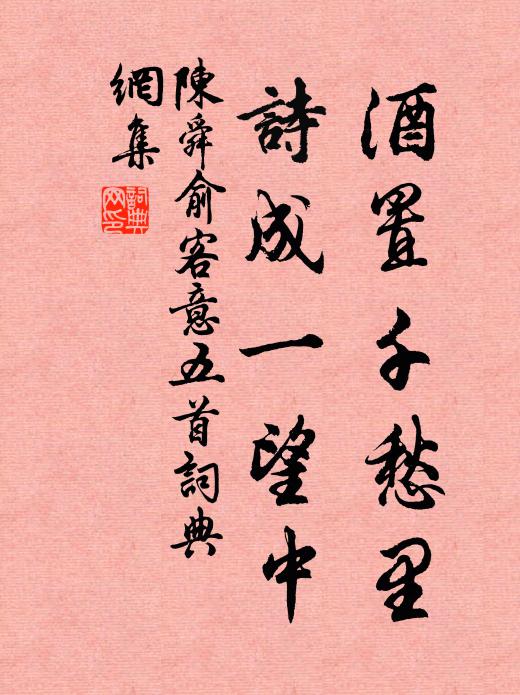 酒置千愁里
詩成一望中
陳舜俞客意五首詞典
網集
詞典
网印